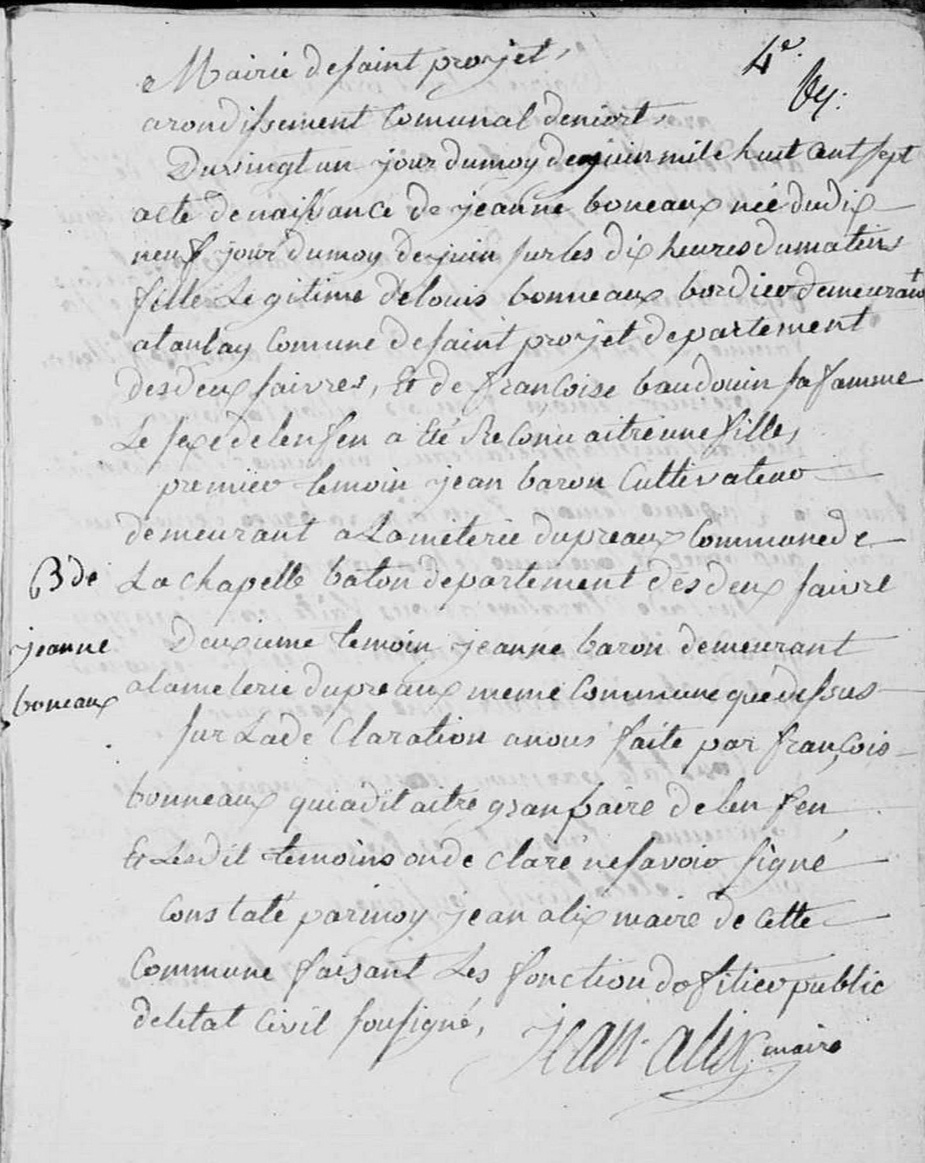 Mairie de saint projet,
4e.
arondissement Comunal deniort,
Duvingt un jour dumoy de juin mile huit Cent sept
acte de naissance de jeanne boneaux née dudix
neuf jour dumoy de juin sur les dix heures dumatin
fille Legitime de louis bonneaux bordier demeurant
alaulay Comune de saint projet departement
des deux saivres, Et de francoise baudouin sa famme
Le sexe de lenfen a été Reconu aitre une fille,
premier temoin jean baron Cultivateur
demeurant a Lameterie dupreaux Commune de
La chapelle baton departement des deux saivre
B de
jeanne
boneaux
Deuxieme temoin jeanne baron demeurant
alameterie dupreaux meme Commune que dessus
sur Lade Claration anous faite par françois
bonneaux quiadit aitre granpaire de len fen
Et Lesdit temoins onde claré nesavoir signé
Constaté parmoy jean alix maire de Cette
Commune faisant Les fonction dofitier public
deletat Civil sousigné,
jean alix maire